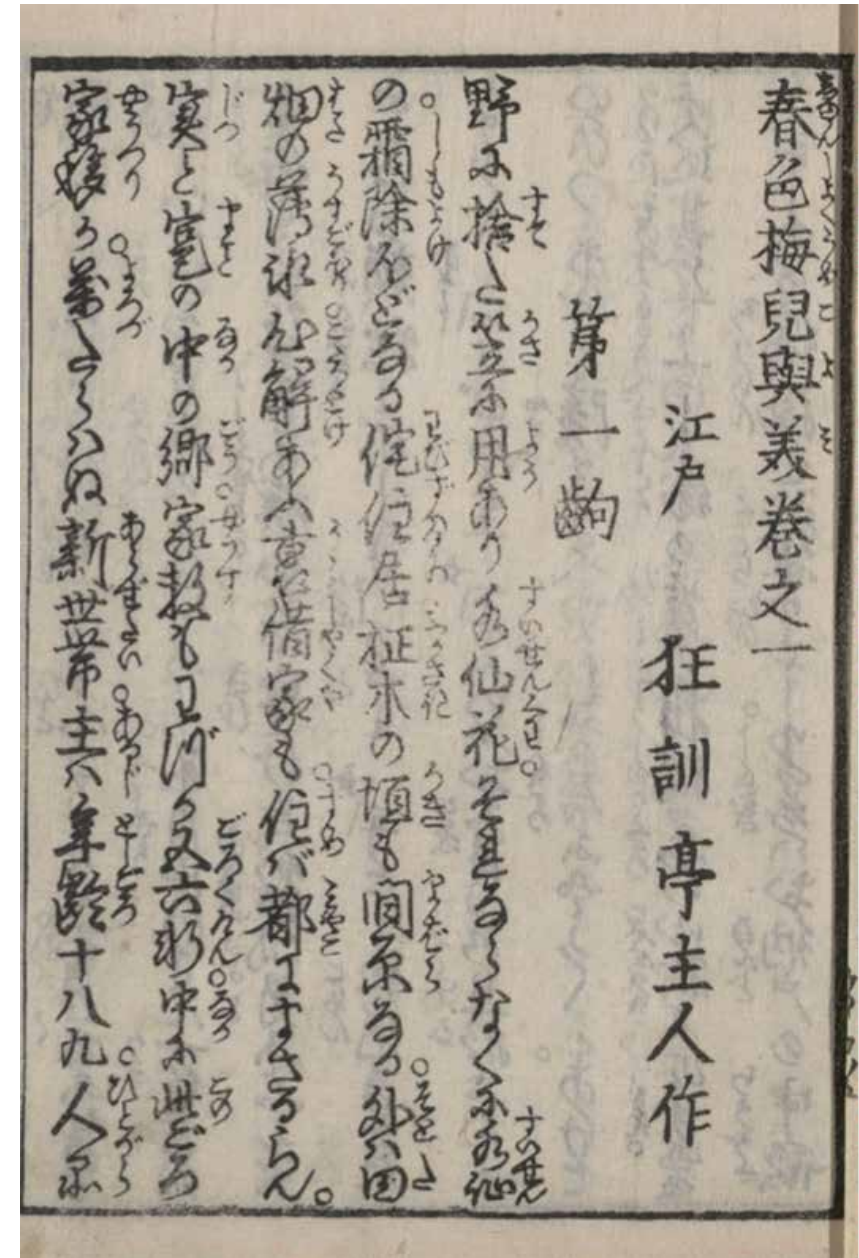 春色梅兒與美巻之一
江戸 狂訓亭主人作
第一齣
野に捨た笠に用あり水仙花それならなくに水仙
の霜除ほどなる侘住居柾木の垣も間原なる外ハ田
畑の薄氷心解あふ裏借家も住バ都にまさるらん。
実と寔の中の郷家数もわづか五六軒中に此ごろ
家移か萬たらハぬ新世帯主ハ年齢十八九人品